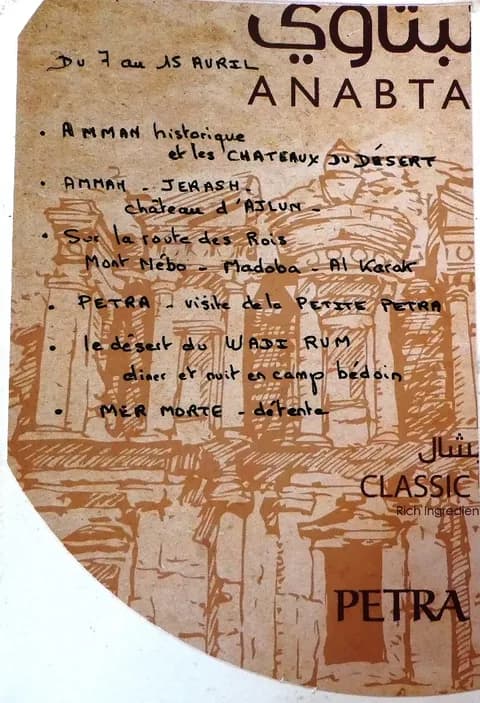 نبتاوي
ANABTA
Du 7 au 15 AVRIL
• AMMAN historique
et les CHATEAUX DU DÉSERT
• AMMAN - JERASH -
château d'AJLUN -
• Sur la route des Rois
Mont Nébo - Madaba - Al Karak
• PETRA - visite de la PETITE PETRA
• le désert du WADI RUM
diner et nuit en camp bédoin
• MER MORTE - détente
CLASSIC
Rich Ingredien
PETRA